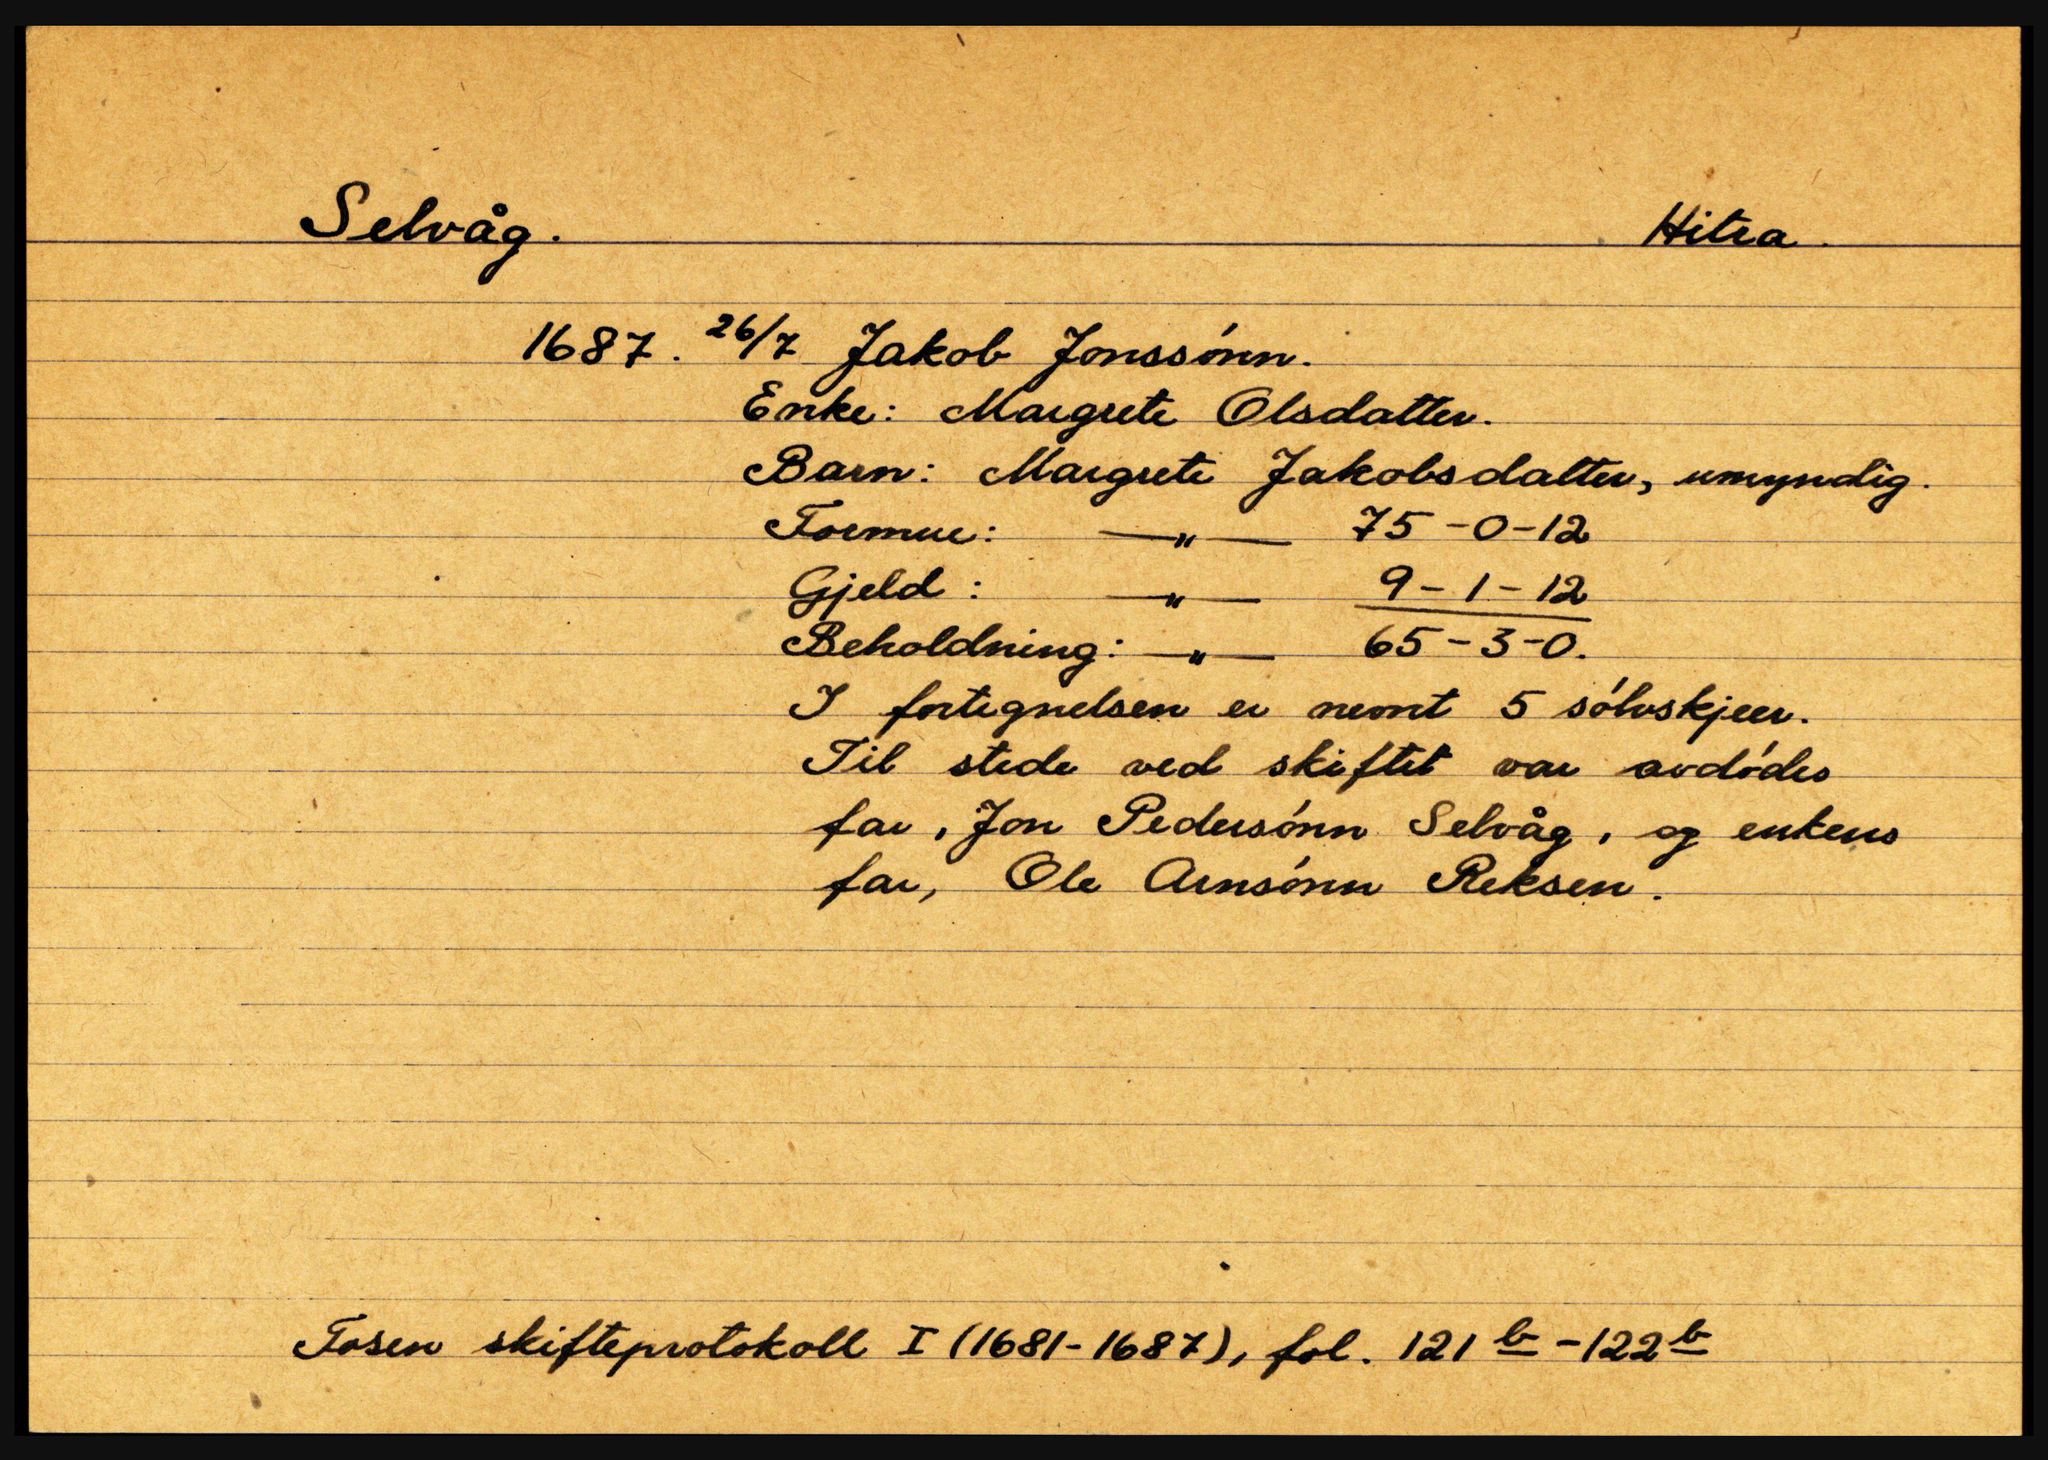 Selvåg. Hitra.
1687. 26/7 Jakob Jonssónn.
Enke: Margrete Olsdatter.
Barn: Margrete Jakobsdatter, umyndig.
Formue: —„— 75-0-12
Gjeld: —„— 9-1-12
Beholdning: —„— 65-3-0.
I fortegnelsen er nevnt 5 sólvskjeer.
Til stede ved skiftet var avdódes
far, Jon Pedersónn Selvåg, og enkens
far, Ole Arnsónn Reksen.
Fosen skifteprotokoll I (1681-1687), fol. 121 b - 122 b